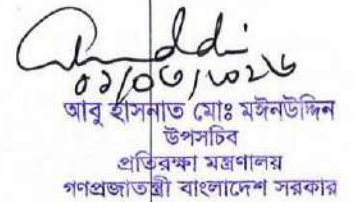 ০১/০৩/২০২৬
আবু হাসনাত মোঃ মঈনউদ্দিন
উপসচিব
প্রতিরক্ষা মন্ত্রণালয়
গণপ্রজাতন্ত্রী বাংলাদেশ সরকার